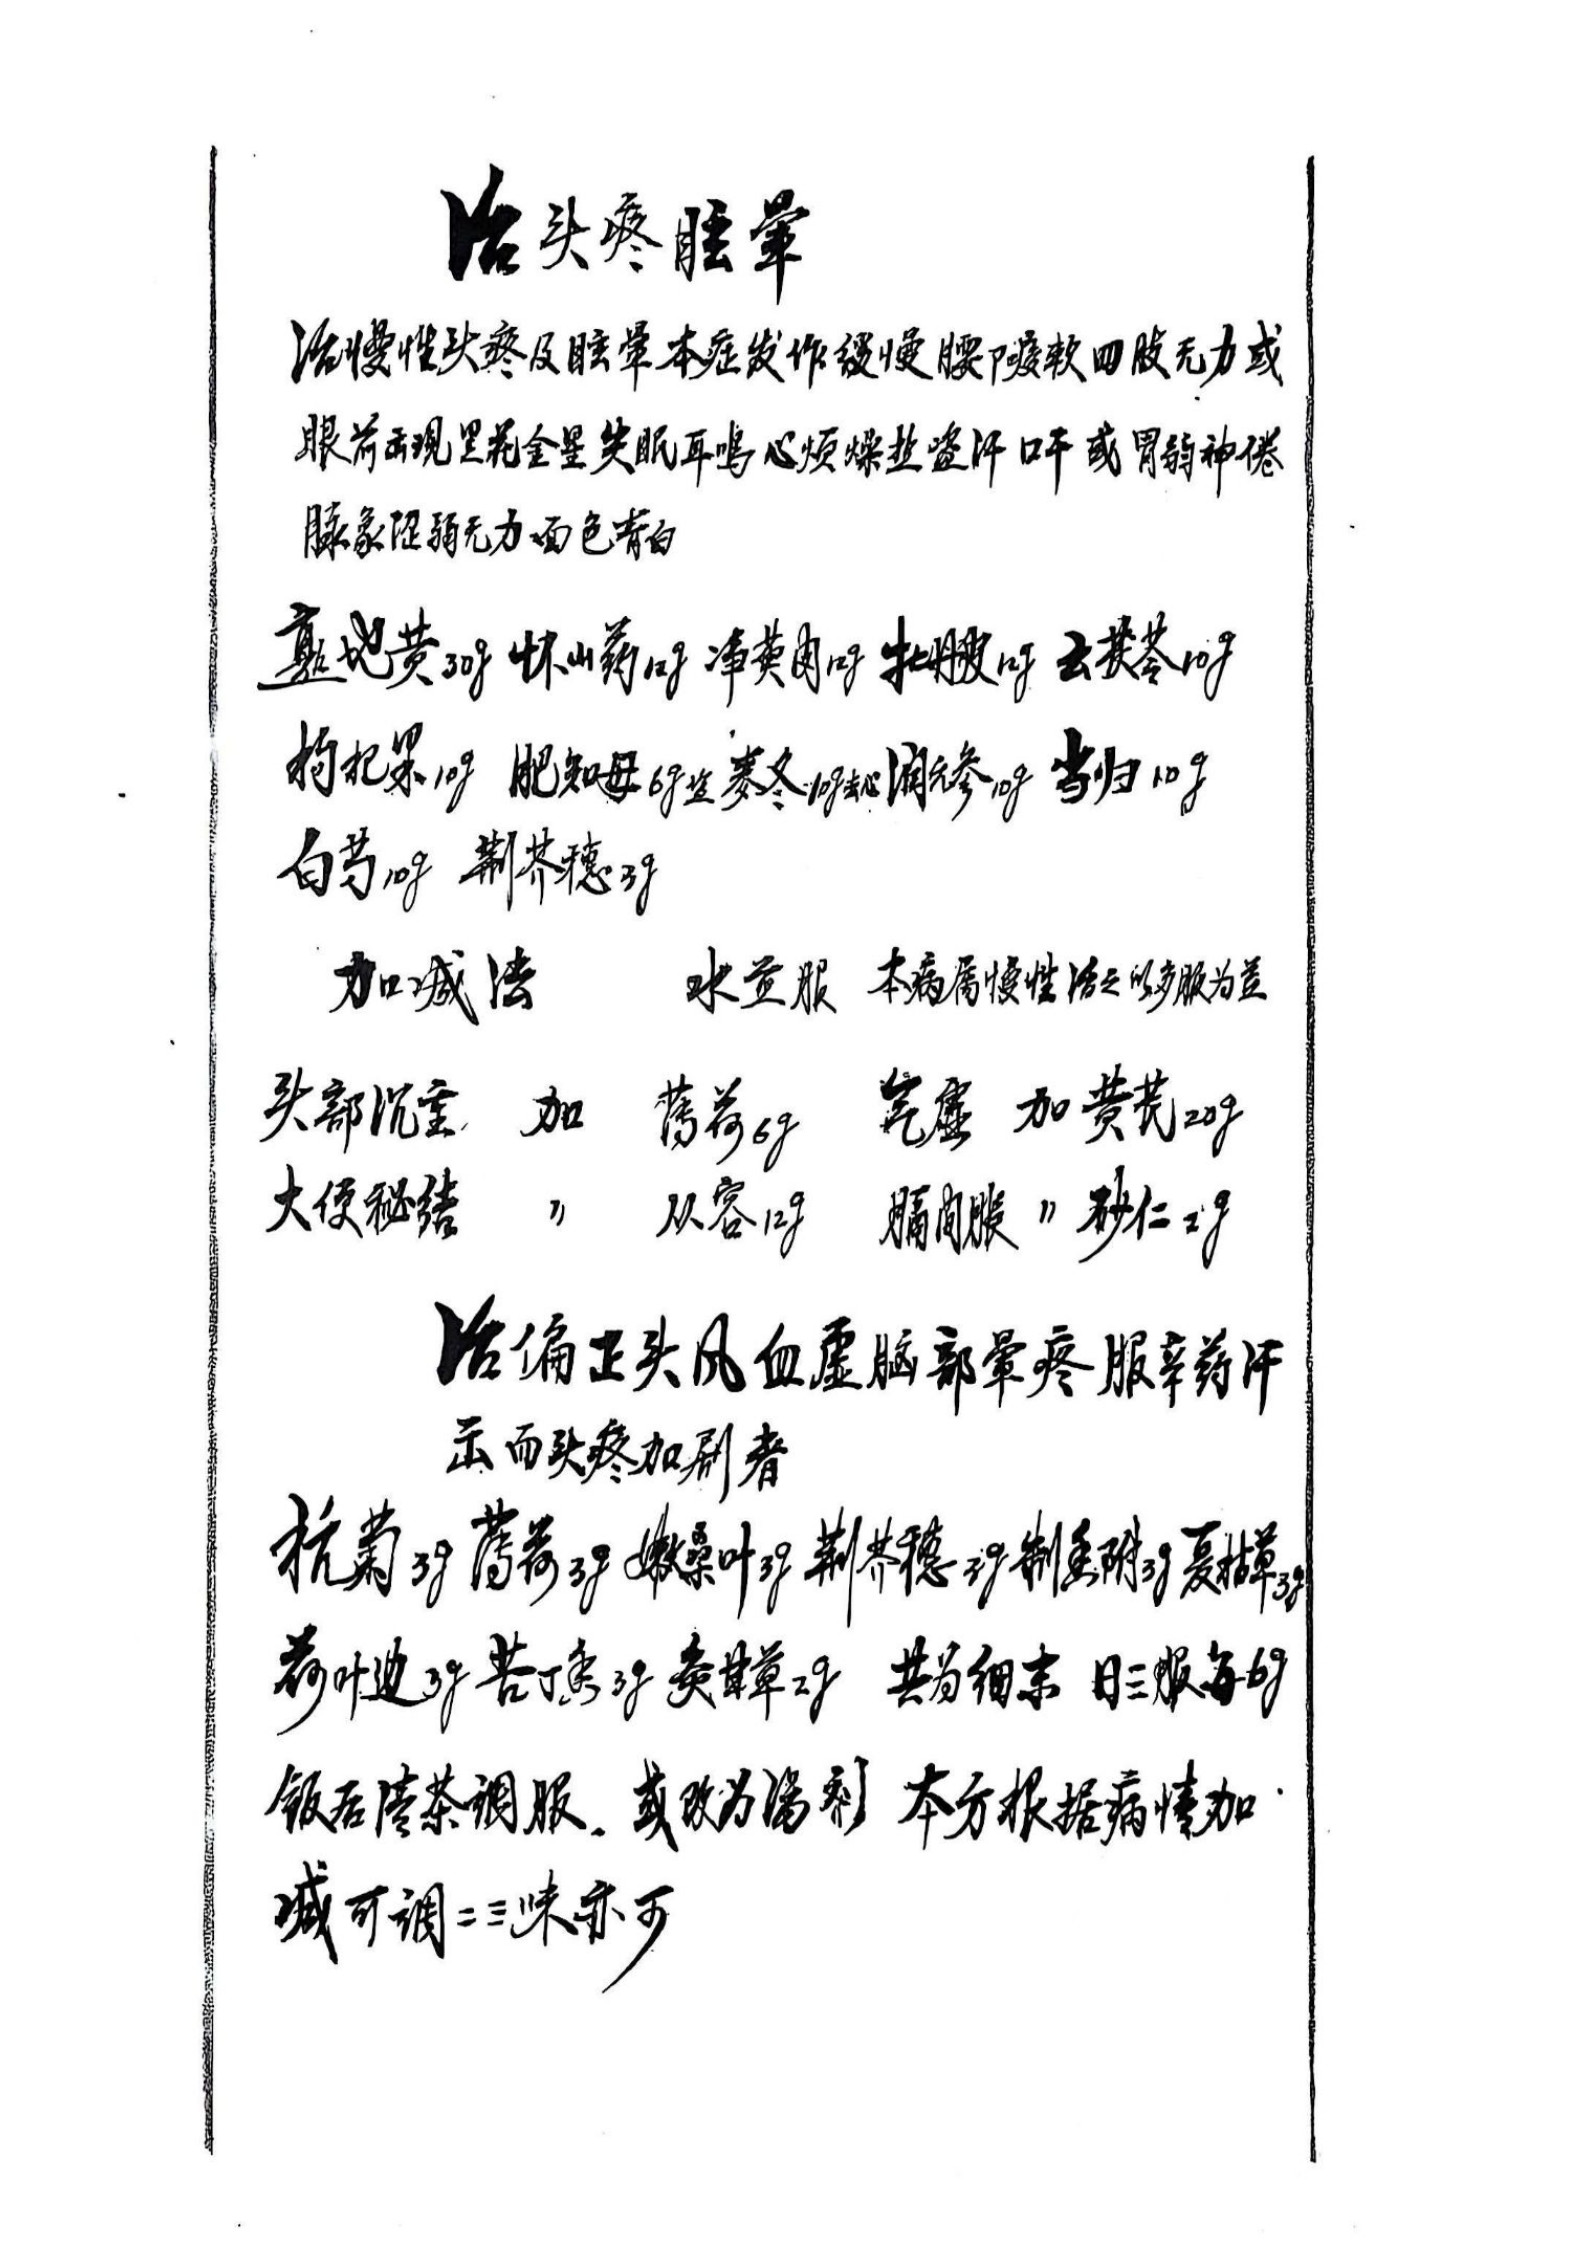 治头疼眩晕
治慢性头疼及眩晕本症发作缓慢腰酸软四肢无力或
眼前出现黑花金星失眠耳鸣心烦燥热盗汗口干或胃弱神倦
脉象弱无力面色青白
熟地黄30g 怀山药12g 净萸肉12g 牡丹皮12g 云茯苓10g
枸杞果10g 肥知母6g盐 麦冬10g去心 润元参10g 当归10g
白芍10g 荆芥穗3g
加减法 水煎服 本病属慢性治之以多服为益
头部沉重 加 薄荷6g 气虚 加 黄芪20g
大便秘结 〃 从容12g 膈间胀 〃 砂仁2g
治偏正头风血虚脑部晕疼服辛药汗
出而头疼加剧者
杭菊3g 薄荷3g 嫩桑叶3g 荆芥穗3g 制香附3g 夏枯草3g
荷叶边3g 苦丁香3g 炙甘草2g 共为细末 日三服每6g
饭后清茶调服。或改为汤剂 本方根据病情加
减可调二三味亦可